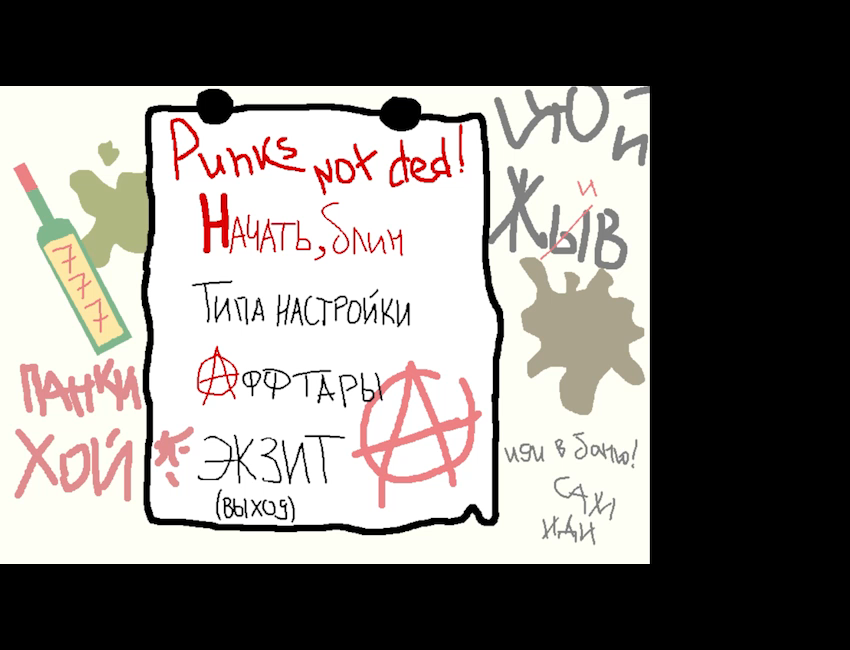 Punks not ded!
Начать, блин
Типа настройки
Аффтары
ЭКЗИТ
(выход)
777
ПАНКИ
ХОЙ
ЦОЙ
ЖЫВ
и
иди в баню!
САМ
ИДИ